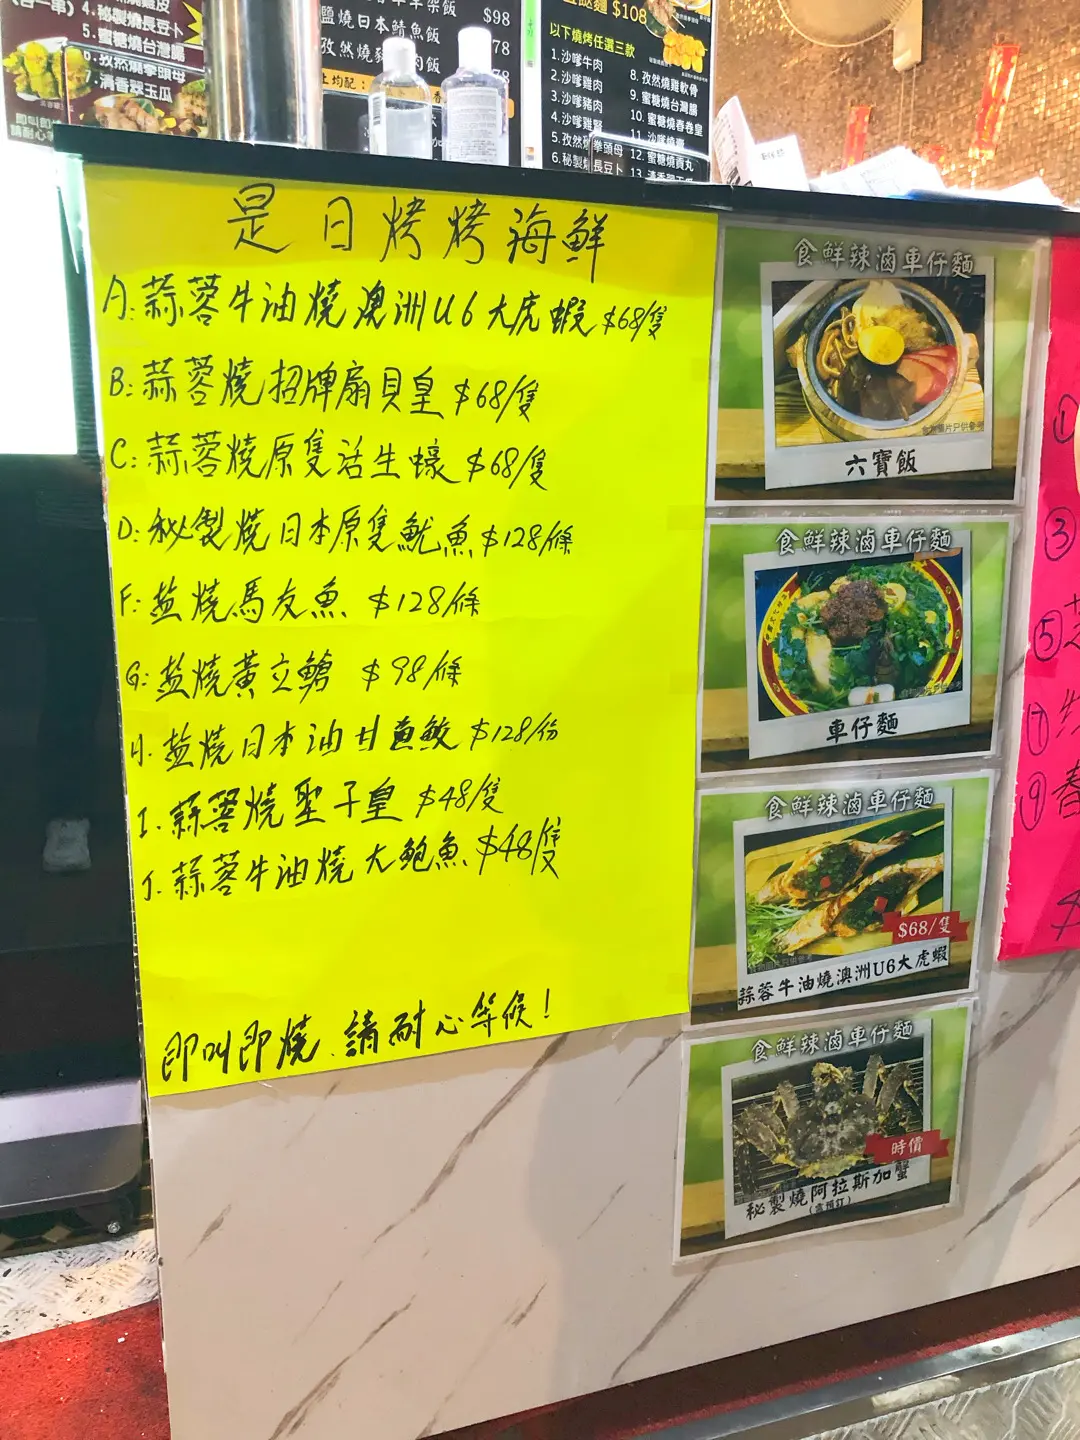 4.秘製燒長豆卜
5.蜜糖燒台灣腸
6.孜然燒拳頭母
7.清香翠玉瓜
$98
鹽燒日本鯖魚飯
$108
以下燒烤任選三款
1.沙嗲牛肉
2.沙嗲雞肉
3.沙嗲豬肉
8.孜然燒雞軟骨
9.蜜糖燒台灣腸
10.蜜糖燒春卷皇
12.蜜糖燒貢丸
拳頭母
長豆卜
是日烤烤海鮮
A:蒜蓉牛油燒澳洲U6大虎蝦$68/隻
B:蒜蓉燒招牌扇貝皇$68/隻
C:蒜蓉燒原隻活生蠔$68/隻
D:秘製燒日本原隻魷魚$128/條
F:盐燒馬友魚 $128/條
G:盐燒黃立鯧 $98/條
H.盐燒日本油甘魚鮫$128/份
I.蒜蓉燒聖子皇$48/隻
J.蒜蓉牛油燒大鮑魚$48/隻
即叫即燒.請耐心等候!
食鮮辣滷車仔麵
六寶飯
食鮮辣滷車仔麵
車仔麵
食鮮辣滷車仔麵
$68/隻
蒜蓉牛油燒澳洲U6大虎蝦
食鮮辣滷車仔麵
時價
秘製燒阿拉斯加蟹
(需預訂)
①
③
⑤
⑦
⑨春
$